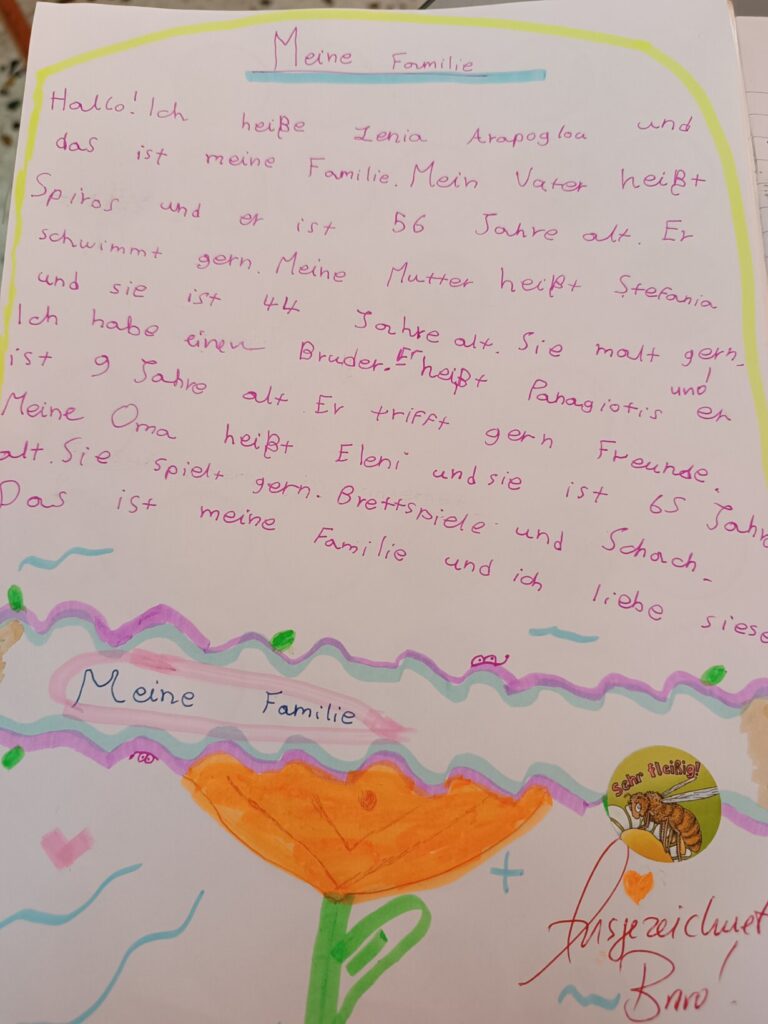 Meine Familie
Hallo! Ich heiße Zenia Arapoglou und
das ist meine Familie. Mein Vater heißt
Spiros und er ist 56 Jahre alt. Er
schwimmt gern. Meine Mutter heißt Stefania
und sie ist 44 Jahre alt. Sie malt gern.
Ich habe einen Bruder. Er heißt Panagiotis und er
ist 9 Jahre alt. Er trifft gern Freunde.
Meine Oma heißt Eleni und sie ist 65 Jahre
alt. Sie spielt gern. Brettspiele und Schach.
Das ist meine Familie und ich liebe
Meine Familie
Sehr fleißig!
Ausgezeichnet
Bravo!